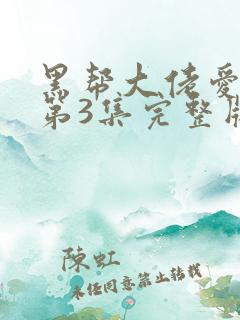 黑帮大佬爱
第3集完整版
陳虹
未经同意禁止转载